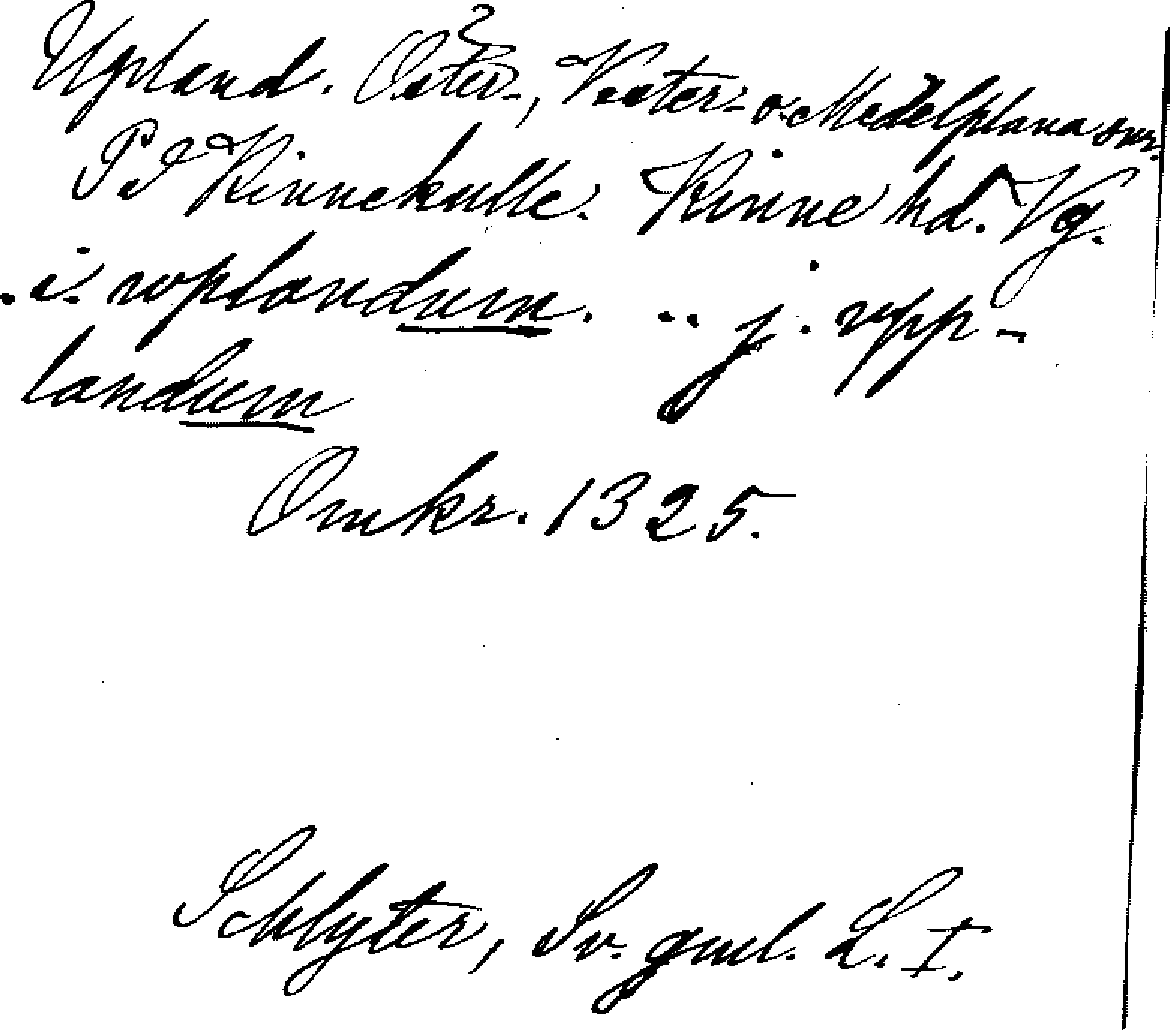 Upland. Öster-, Vester- o. Medelplana snr.
På Kinnekulle. Kinne hd. Vg.
.i. wplandum. .. j. vpp-
landum
Omkr. 1325.
Schlyter, Sv. gml. L. I.